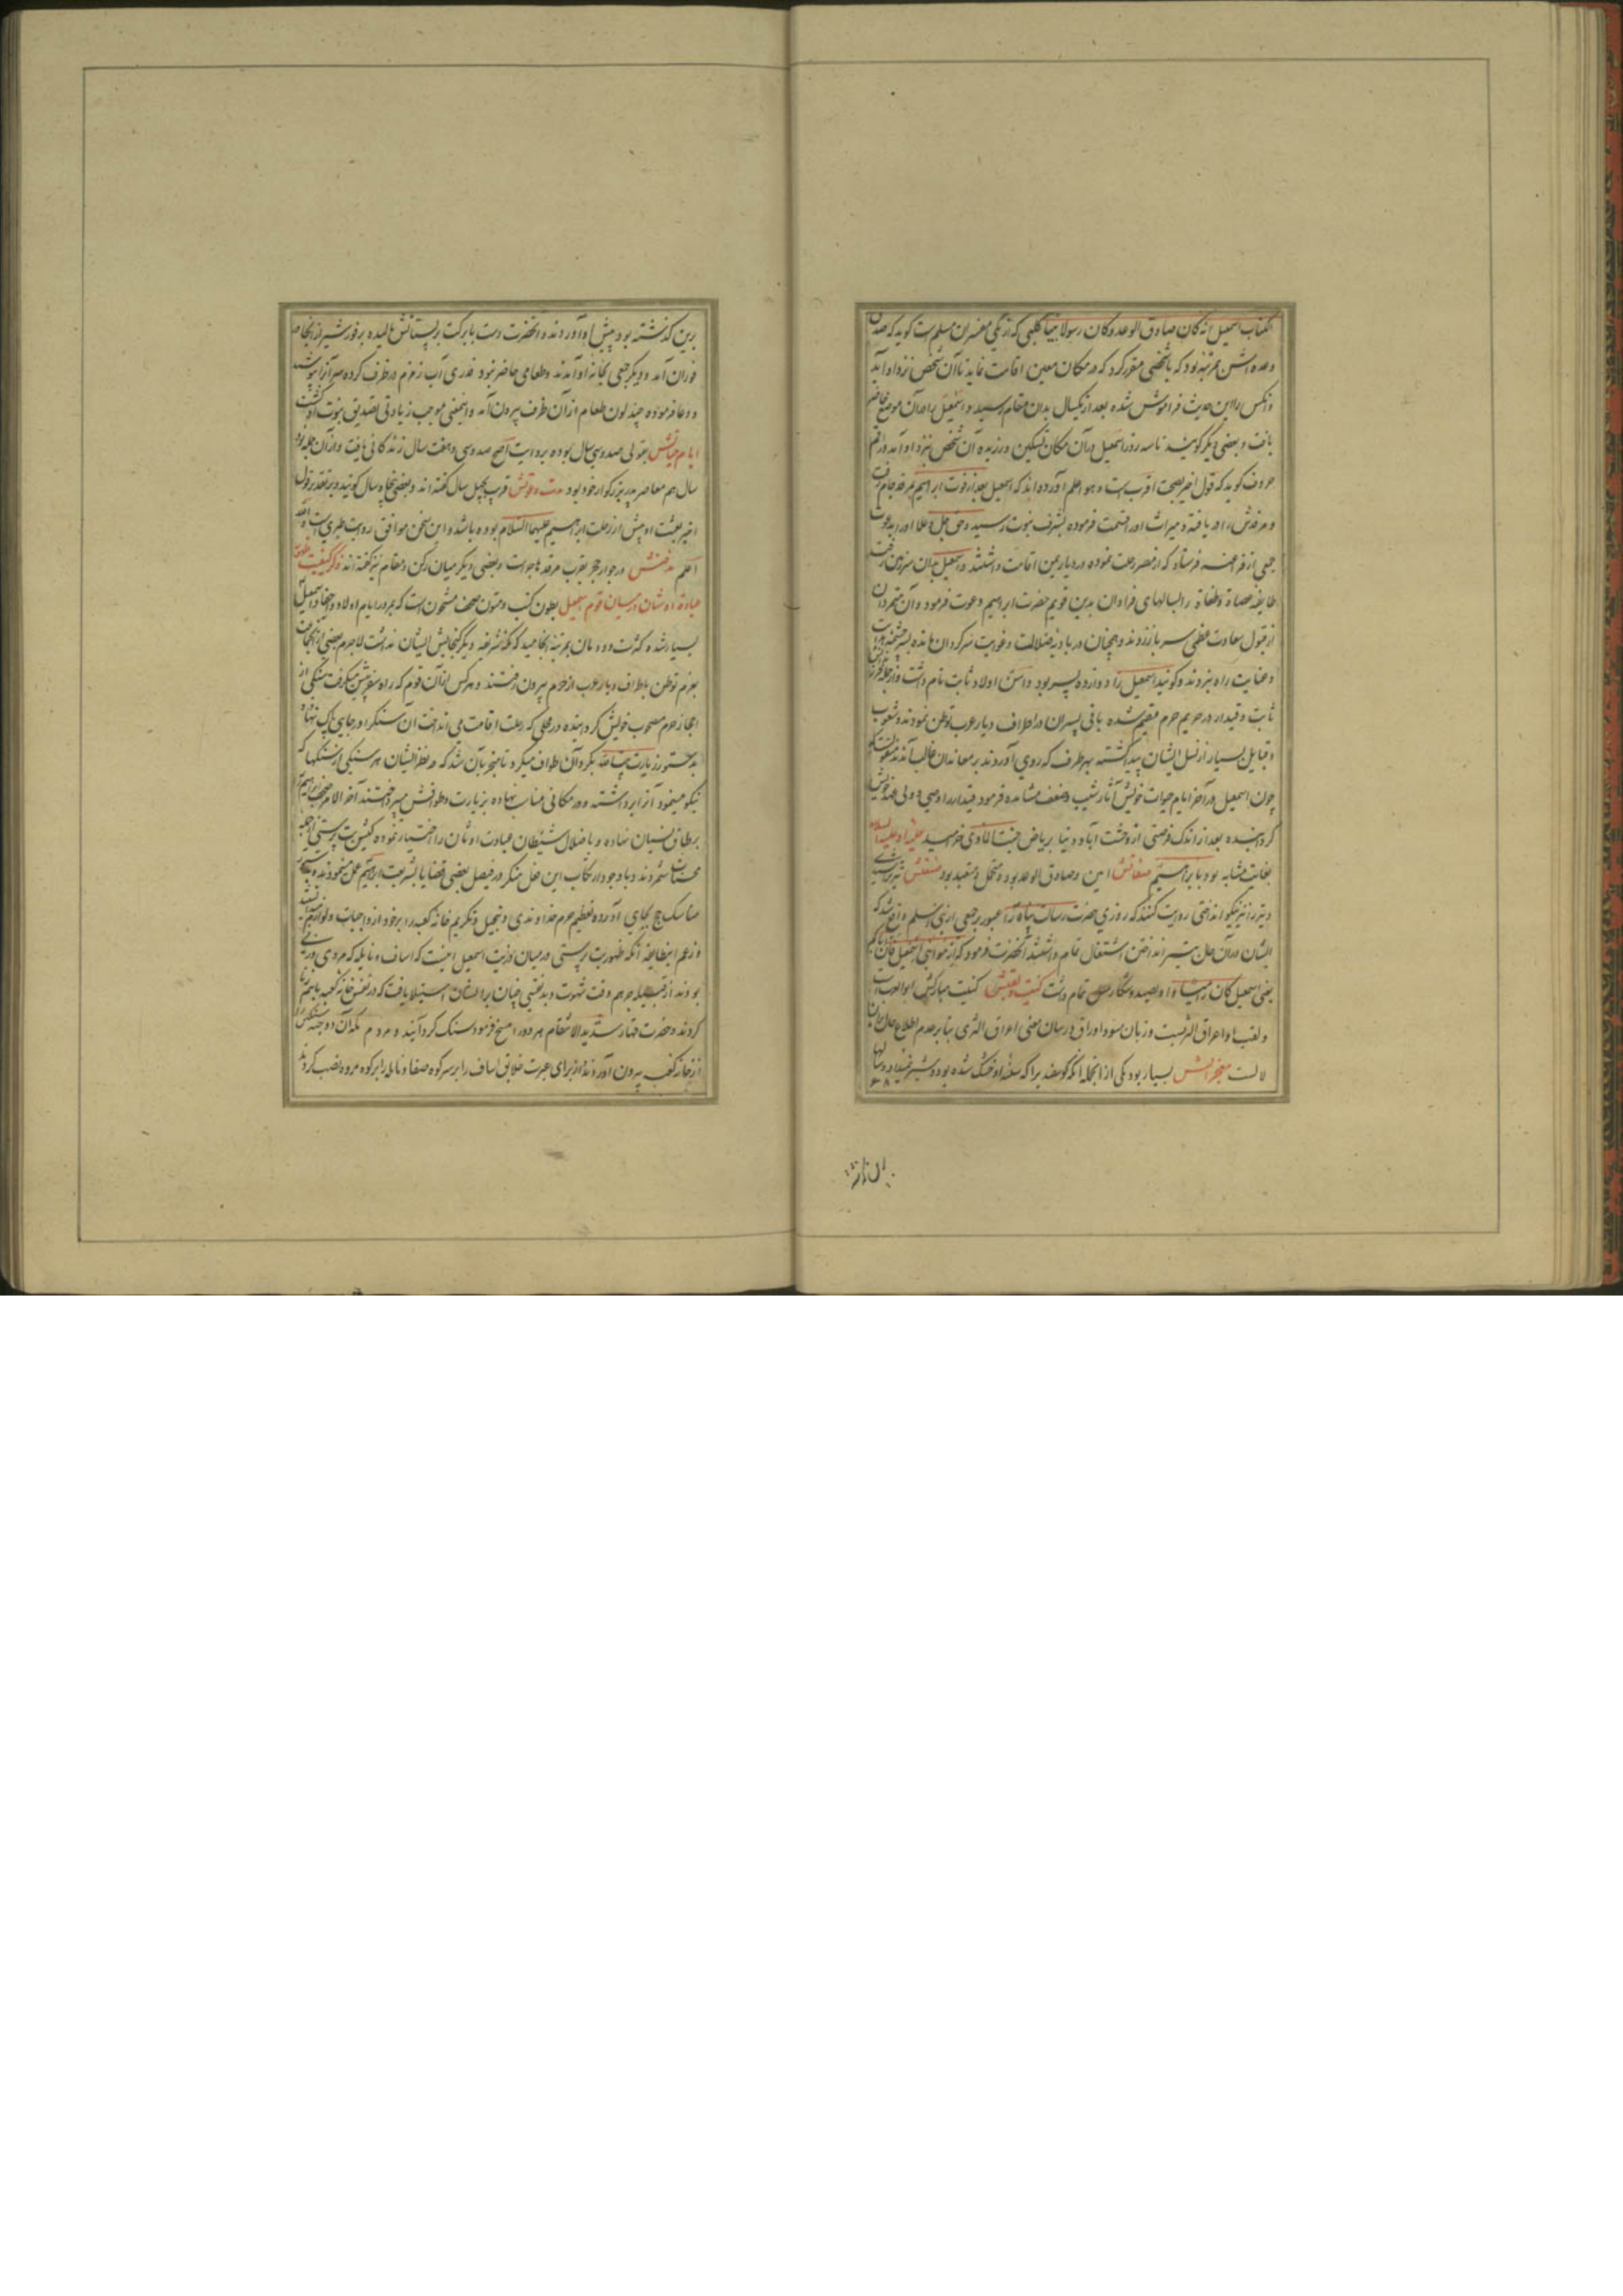 الکتاب اسمعیل انه کان صادق الوعد و کان رسولا نبیا کلبی که از یکی مفسران مسلم است کوید که صدق
وعده اشس بمرتبه بود که با شخصی مقرر کرد که در مکان معین اقامت نماید تا آن شخص نزد او آید
و آنکس را این حدیث فراموش شده بعد از یکسال بدان مقام رسید و اسمعیل را در آن موضع حاضر
یافت و بعضی دیگر کویند تا سه روز اسمعیل در آن مکان تسکین ورزیده آن شخص نزد او آمد و راقم
حروف کوید که قول اخیر بصحت اقرب است و هو اعلم آورده اند که اسمعیل بعد از فوت ابراهیم بمرقد شام رفت
و مرقدش را دریافته و میراث او را قسمت فرموده بشرف نبوت رسید و حق جل و علا او را بدعوت
جمعی از فراعنه فرستاد که از مصر رحلت نموده در دیار یمن اقامت داشتند و اسمعیل بدان سرزمین رفت
طایفه عصاة و طغاة را بسالهای فراوان بدین قویم حضرت ابراهیم دعوت فرمود و آن متمردان
از قبول سعادت عظمی سر باز زدند و همچنان در بادیه ضلالت و غوایت سرکردان مانده بسرچشمه هدایت
و عنایت راه نبردند و کویند اسمعیل را دوازده پسر بود و اسن اولاد ثابت نام داشت و از جمله
ثابت و قیدار در حریم حرم مقیم شده باقی پسران در اطراف دیار عرب توطن نمودند و شعوب
و قبایل بسیار از نسل ایشان پیدا کشته بهر طرف که روی آوردند بر معاندان غالب آمدند
چون اسمعیل در آخر ایام حیوات خویش آثار شیب و ضعف مشاهده فرمود قیدار را وصی و ولی عهد خویش
کردانیده بعد از اندک فرصتی از وحشت آباد دنیا بریاض جنت الماوی خرامید حلیه او علیه السلام
بغایت مشابه بود بابراهیم صفاتش امین و صادق الوعد بود و متحمل و متعبد بود صنعتش تیرتراشی
و تیر را نیز نیکو انداختی روایت کنند که روزی حضرت رسالت پناه را عبور بر جمعی از بنی اسلم واقع شد که
ایشان در آن حال بتیر انداختن اشتغال تمام داشتند آنحضرت فرمود که ارموا بنی اسمعیل فان اباکم
یعنی اسمعیل کان رامیا و او بصید و شکار میل تمام داشت کنیت و لقبش کنیت مبارکش ابوالعرب است
و لقب او اعراق الثریست و زبان مسود اوراق در بیان معنی اعراق الثری بنابر عدم اطلاع حال بران
لالست معجزاتش بسیار بود یکی از انجمله آنکه کوسفند یرا که سالها خشک شده بود و شیر نمیداد و سالها
برین کذشته بود پیش او آوردند و آنحضرت دست بابرکت بر پستانش مالیده بر فور شیر از انجا
فوران آمد و دیکر جمعی بخانه او آمدند و طعامی حاضر نبود قدری آب زمزم در ظرف کرده سر آنرا بپوشید
و دعا فرموده چند لون طعام از آن ظرف بیرون آمد و اینمعنی موجب زیادتی تصدیق نبوت او کشت
ایام حیاتش بقولی صد و سی سال بوده بروایت اصح صد و سی و هفت سال زندکانی یافت و از آن جمله
سال هم معاصر پدر بزرکوار خود بود مدت دعوتش قرب بچهل سال کفته اند و بعضی پنجاه سال کویند و بر تقدیر قول
اخیر بعثت او پیش از رحلت ابراهیم علیهما السلام بوده باشد و این سخن موافق روایت طبری است والله
اعلم مدفنش در جوار حجر بقرب مرقد هاجر است و بعضی دیکر میان رکن و مقام نیز کفته اند ذکر کیفیت ظهور
عبادة اوثان در میان قوم اسمعیل بطون کتب و متون صحف مشحون است که بمرور ایام اولاد و احفاد اسمعیل
بسیار شده کثرت دودمان بمرتبه انجامید که مکه شریفه دیکر کنجایش ایشان نداشت لاجرم بعضی از آنجماعت
بعزم توطن باطراف دیار عرب از حرم بیرون رفتند و هر کس از آن قوم که راه سفر پیش میکرفت سنکی از
احجار حرم مصحوب خویش کردانیده در محلی که رحلت اقامت می انداخت آن سنک را در جای پاک نهاده
بدستور زیارت بیت الله بکرد آن طواف میکرد تا منجر بآن شد که در نظر ایشان هر سنکی از سنکها که
نیکو مینمود آنرا برداشته و در مکانی مناسب نهاده بزیارت و طوافش میپرداختند آخر الامر
بر طاق نسیان نهاده و باضلال شیطان عبادت اوثان را اختیار نموده کیش بت پرستی از جمله
محسنات شمردند و با وجود ارتکاب این فعل منکر در فیصل بعضی قضایا بشریعت ابراهیم عمل مینمودند و
مناسک حج بجای آورده تعظیم حرم خداوندی و تبجیل و تکریم خانه کعبه را بر خود از واجبات و لوازم
و زعم اینطایفه آنکه ظهور بت پرستی در میان ذریت اسمعیل اینست که اساف و نایله که مردی و زنی
بودند از قبیله جرهم وقت شهوت و بدنفسی چنان بر ایشان استیلا یافت که در نفس خانه کعبه باهم زنا
کردند و حضرت قهار شدید الانتقام هر دو را مسخ فرمود سنک کردانید و مردم مکه آن دو جسد سنکین را
از خانه کعبه بیرون آوردند و از برای عبرت خلایق اساف را بر سر کوه صفا و نایله را بر کوه مروه نصب کردند